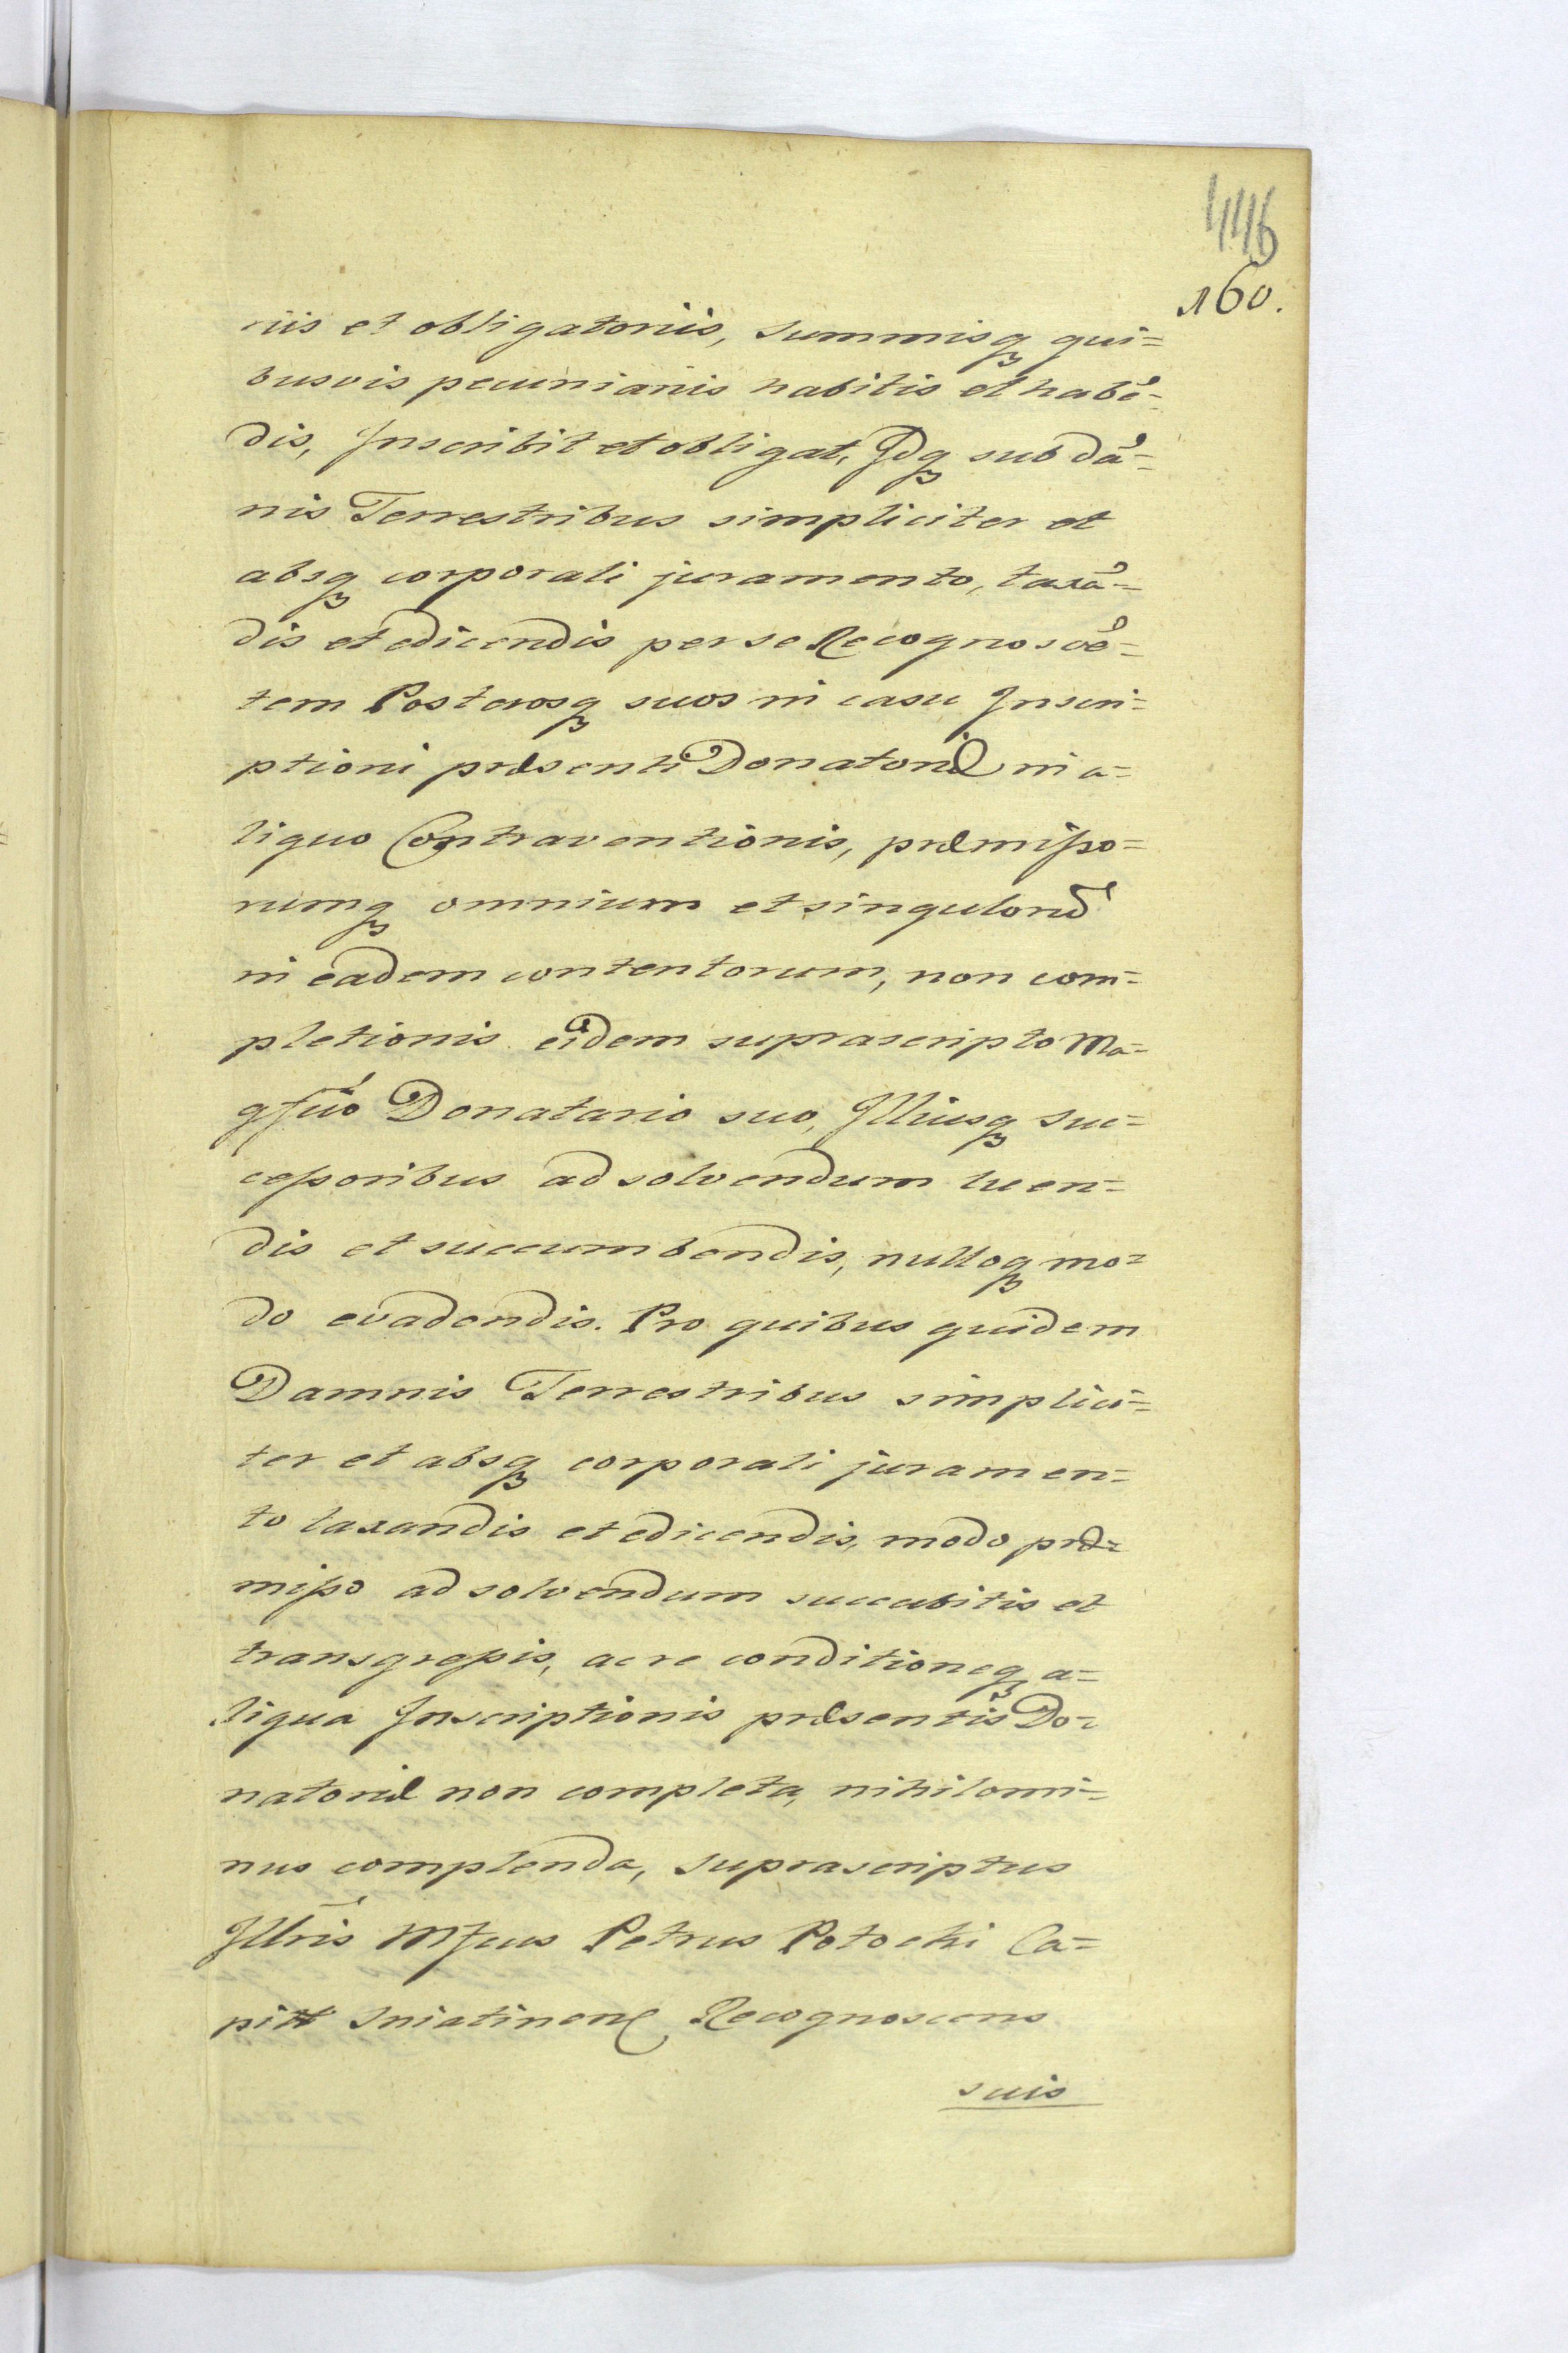 446
160.
riis et obligatoriis, summisqꝫ qui=
busvis pecuniariis habitis et habē=
dis, Inscribit et obligat, Idqꝫ sub dā=
nis Terrestribus simpliciter et
absqꝫ corporali juramento, taxā=
dis et edicendis per se Recognoscē=
tem Posterosqꝫ suos in casu Inscri=
ptioni præsenti Donatoriæ in a=
liquo Contraventionis, præmisso=
rumqꝫ omnium et singulorū
in eadem contentorum, non com=
pletionis eidem suprascripto Ma=
gfico Donatario suo, Illiusqꝫ suc=
cessoribus ad solvendum luen=
dis et succumbendis, nulloqꝫ mo=
do evadendis. Pro quibus quidem
Damnis Terrestribus simplici=
ter et absqꝫ corporali juramen=
to taxandis et edicendis, modo præ=
misso ad solvendum succubitis et
transgressis, ac re conditioneqꝫ a=
liqua Inscriptionis præsentis Do=
natoriæ non completa, nihilomi=
nus complenda, suprascriptus
Illris Mfcus Petrus Potocki Ca=
pitt Sniatinen Recognoscens
suis